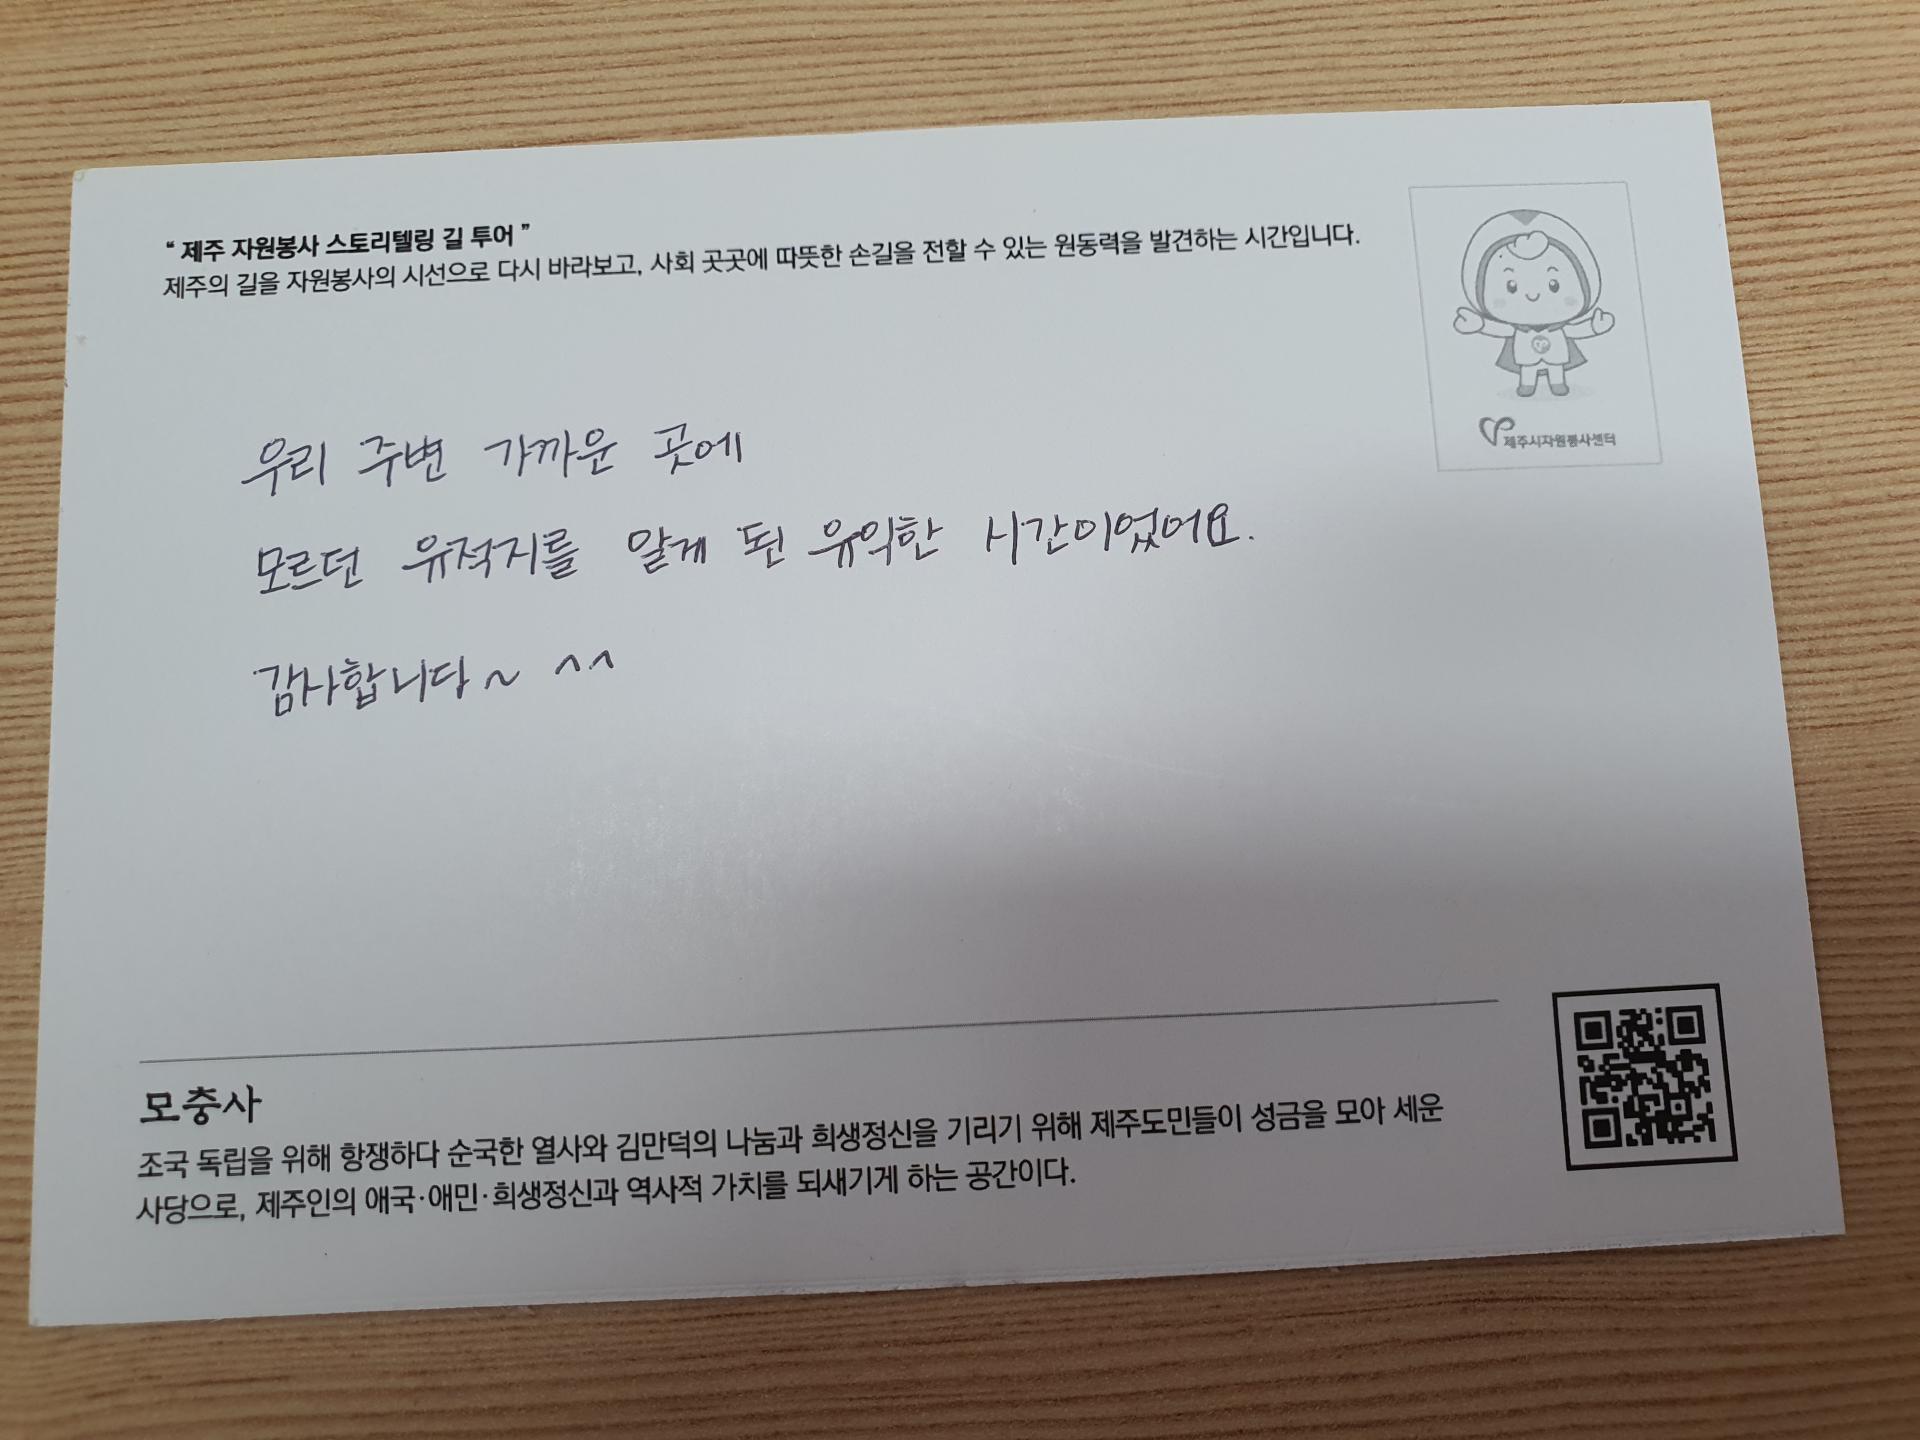 “ 제주 자원봉사 스토리텔링 길 투어 ”
제주의 길을 자원봉사의 시선으로 다시 바라보고, 사회 곳곳에 따뜻한 손길을 전할 수 있는 원동력을 발견하는 시간입니다.
제주시자원봉사센터
우리 주변 가까운 곳에
모르던 유적지를 알게 된 유익한 시간이었어요.
감사합니다~ ^^
모충사
조국 독립을 위해 항쟁하다 순국한 열사와 김만덕의 나눔과 희생정신을 기리기 위해 제주도민들이 성금을 모아 세운
사당으로, 제주인의 애국·애민·희생정신과 역사적 가치를 되새기게 하는 공간이다.